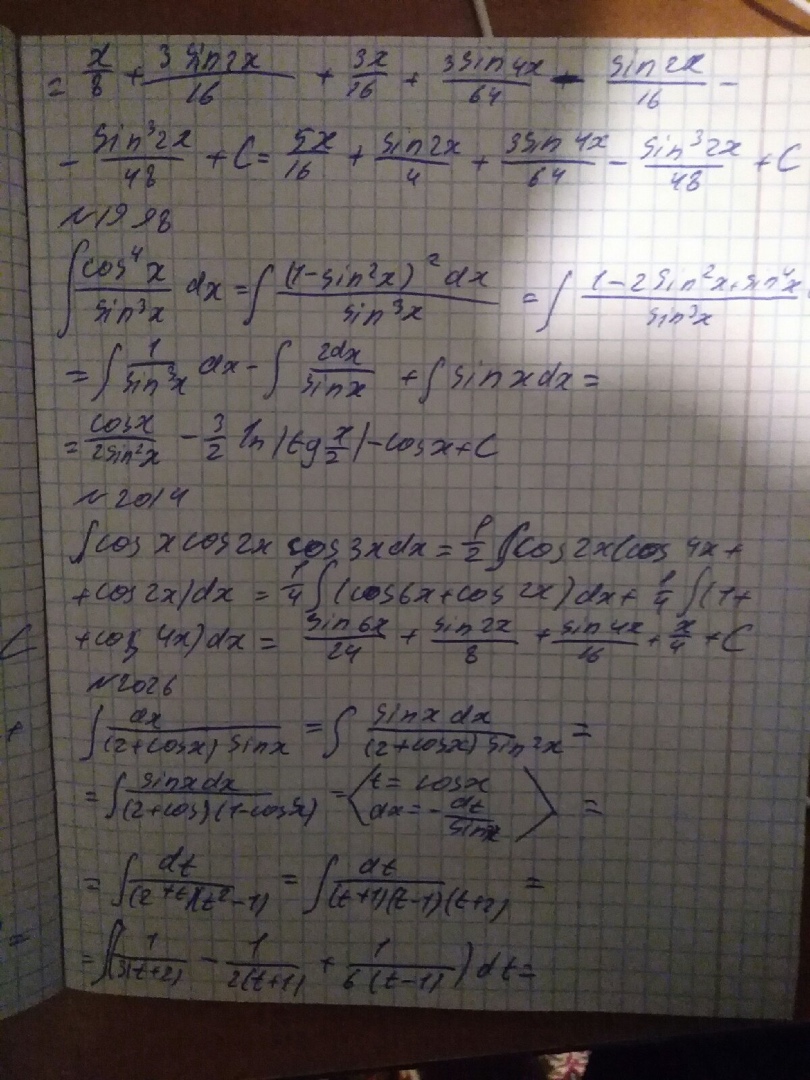 = x/8 + 3 sin2x/16 + 3x/16 + 3sin4x/64 - sin2x/16 -
- sin³2x/48 + C = 5x/16 + sin2x/4 + 3sin 4x/64 - sin³2x/48 + C
№1998
∫ cos⁴x/sin³x dx = ∫ (1-sin²x)² dx/sin³x = ∫ 1-2sin²x+sin⁴x/sin³x
= ∫ 1/sin³x dx - ∫ 2dx/sinx + ∫ sinxdx =
= cosx/2sin²x - 3/2 ln |tg x/2| - cosx + C
№2014
∫cos x cos2x cos 3xdx = 1/2 ∫cos2x(cos 4x +
+ cos2x)dx = 1/4 ∫(cos6x + cos 2x)dx + 1/4 ∫(1+
+ cos 4x)dx = sin6x/24 + sin2x/8 + sin4x/16 + x/4 + C
№2026
∫ dx/(2+cosx) sinx = ∫ sinx dx/(2+cosx) sin²x =
= ∫ sinxdx/(2+cos)(1-cos²x) = <t = cosx
dx = - dt/sinx> =
= ∫ dt/(2+t)(t²-1) = ∫ dt/(t+1)(t-1)(t+2) =
= ∫(1/3(t+2) - 1/2(t+1) + 1/6(t-1)) dt =